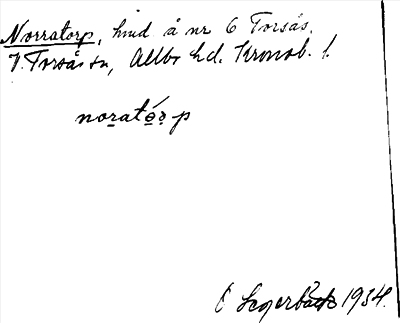 Norratorp, hmd å nr 6 Torsås,
V. Torsås sn, Allbo hd. Kronob. l.
noratórp
E Segerbäck 1934.